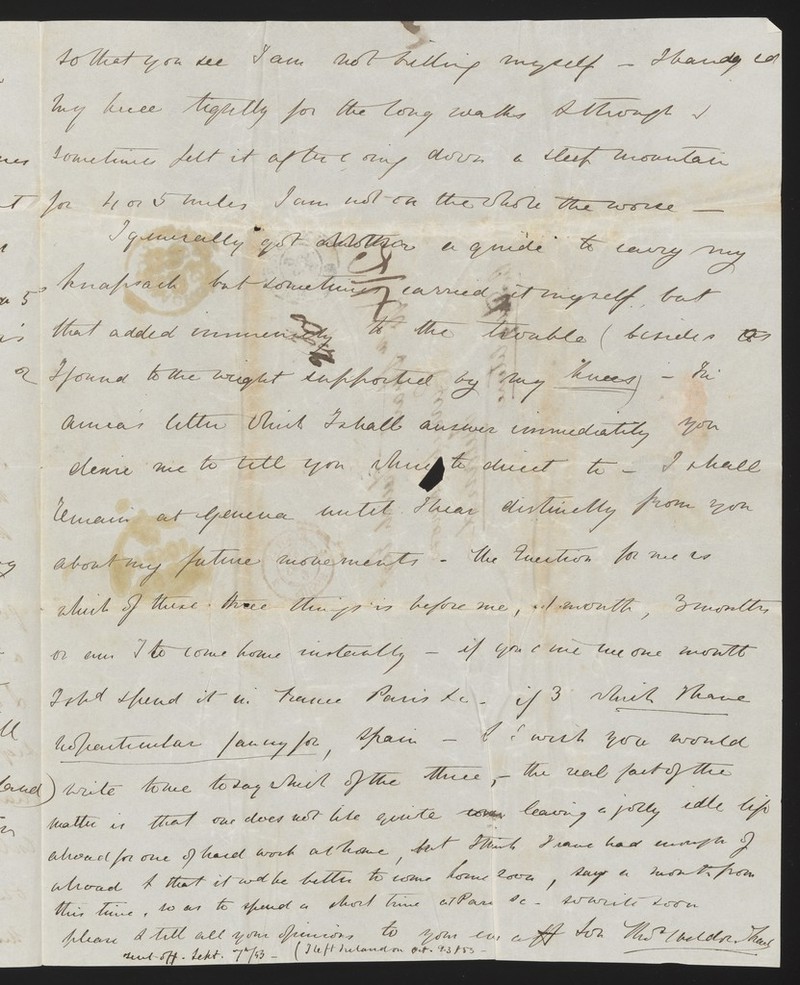 so that you see I am not killing myself – I bandaged
my knee tightly for the long walks & though I
sometimes felt it after going down a steep mountain
for 4 or 5 miles I am not on the whole the worse –
I generally got a guide to carry my
knapsack but sometimes carried it myself, but
that added immensely to the trouble (besides as
I found to the weight supported by my knees) – In
letter which I shall answer immediately you
desire me to tell you where to direct to – I shall
remain at Geneva until I hear distinctly from you
about my future movements – The Question for me is
which of these three things is before me, 1 month, 3 months
or am I to come home instantly – if you give me one month
I shd spend it in France Paris &c – if 3 which I have
no particular fancy for, Spain – I wish you would
write to me to say which of the three, – the real fact of the
matter is that one does not like quite leaving a jolly idle life
abroad for one of hard work at home, but I think I have had enough of
abroad & that it wd be better to come home soon, say a month from
this time, so as to spend a short time at Paris &c – so write soon
please & tell all your opinions to your aff son Thos Weldon
sent off. Sept. 7th/53 – (I left Ireland on Oct. 23/53 –